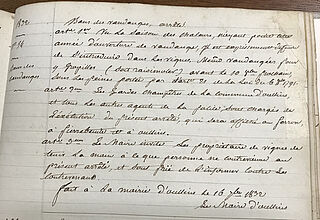 1832
Bans de vendanges, arrêté
art. 1er Vu la saison des chaleurs n'ayant
année d'ouverture de vendange, il est expressément défendu
de s'introduire dans les vignes,
ban de
vendanges
y grapiller (dit raisonnier) avant le 10 8bre prochain,
sous les peines portées par l'art. 21 de la loi du 6 8bre 1791
art. 2me Les Gardes champêtre de la commune d'oullins
et tous les autres agents de la police sont chargés de
l'exécution du présent arrêté, qui sera affiché
à pierrebenite et à oullins.
art. 3me Le Maire invite les propriétaires de vignes de
tenir la main à ce que personne ne contrevienne au
présent arrêté, et sont priés de l'informer contre les
contrevenants.
fait à la mairie d'oullins le 16 7bre 1832
Le Maire d'oullins